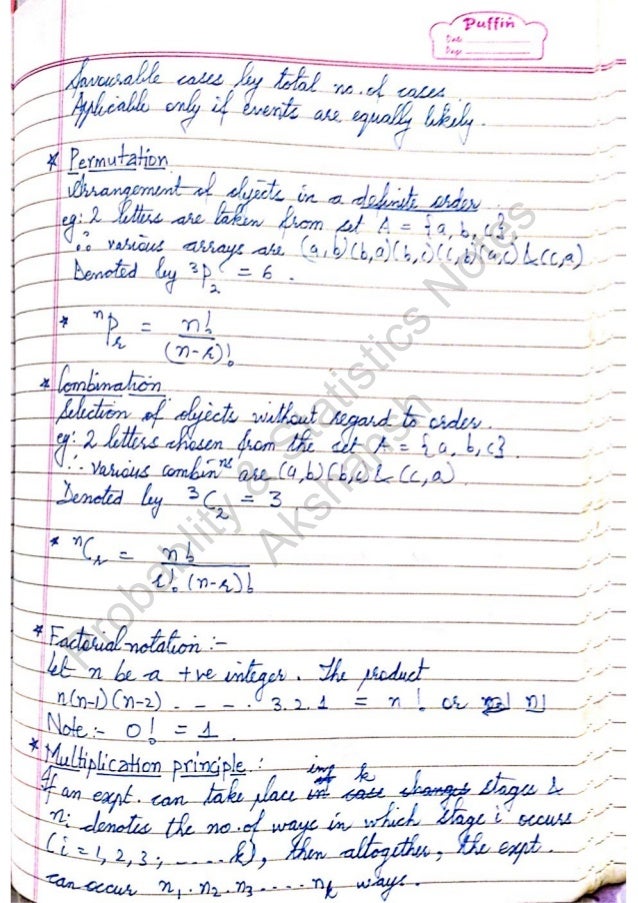 Puffin
Date
Page
favourable cases by total no. of cases
Applicable only if events are equally likely.
* Permutation
Arrangement of objects in a definite order.
eg: 2 letters are taken from set A = {a, b, c}.
∴ various arrays are (a,b)(b,a)(b,c)(c,b)(a,c) & (c,a)
Denoted by ³P₂ = 6.
* ⁿPᵣ = n! / (n-r)!
* Combination
Selection of objects without regard to order.
eg: 2 letters chosen from the set A = {a, b, c}.
∴ various combinⁿˢ are (a,b)(b,c) & (c,a).
Denoted by ³C₂ = 3
* ⁿCᵣ = n! / r! (n-r)!
* Factorial notation :-
Let n be a +ve integer. The product
n(n-1)(n-2) - - - . 3.2.1 = n! or n!
Note:- 0! = 1.
* Multiplication principle :
If an expt. can take place in k stages &
nᵢ denotes the no. of ways in which stage i occurs
(i = 1, 2, 3, .... k), then altogether, the expt.
can occur n₁.n₂.n₃.....nₖ ways.
Probability & Statistics Notes
Akshansh